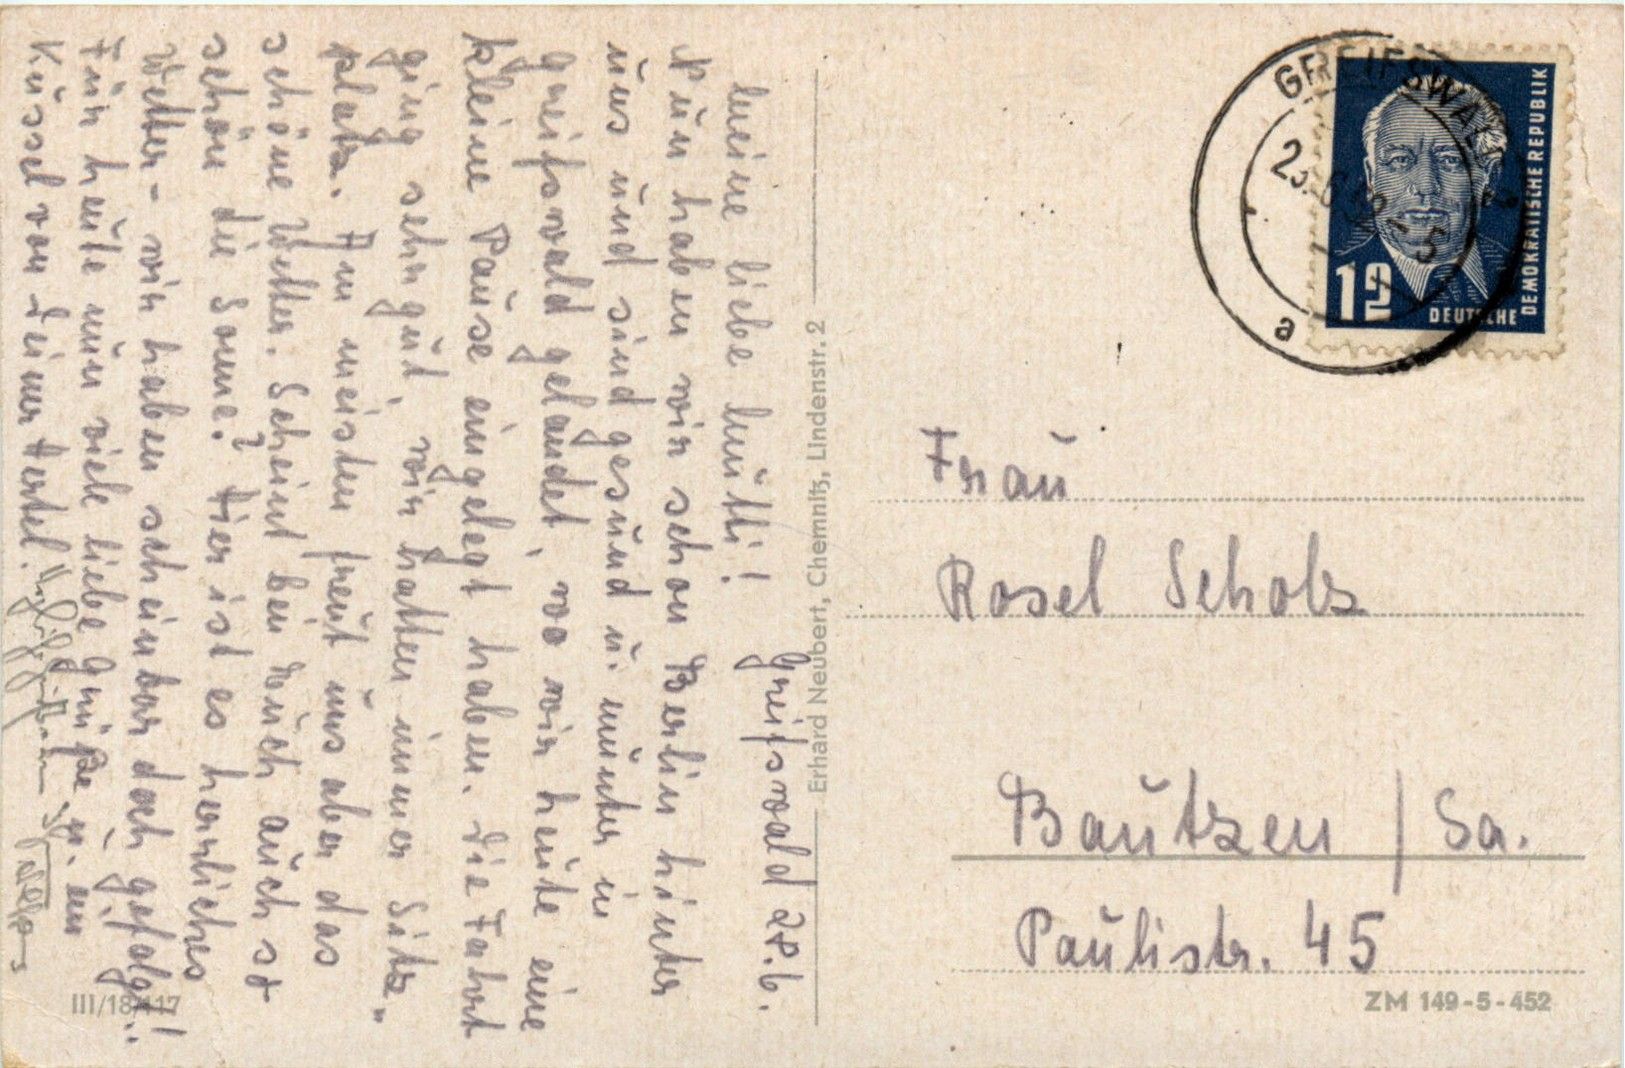 Greifswald 28.6.
Meine liebe Mutti!
Nun haben wir schon Berlin hinter
uns und sind gesund u. munter in
Greifswald gelandet, wo wir heute eine
kleine Pause eingelegt haben. Die Fahrt
ging sehr gut, wir hatten immer Sitz-
platz. Am meisten freut uns aber das
schöne Wetter. Scheint bei Euch auch so
schön die Sonne? Hier ist es herrliches
Wetter – wir haben scheinbar doch gefolgt!
Für heute nun viele liebe Grüße u. ein
Küssel von Deiner
Erhard Neubert, Chemnitz, Lindenstr. 2
III/18/117
GREIFSWALD
a
12
DEUTSCHE
DEMOKRATISCHE REPUBLIK
Frau
Rosel Scholz
Bautzen / Sa.
Paulistr. 45
ZM 149-5-452